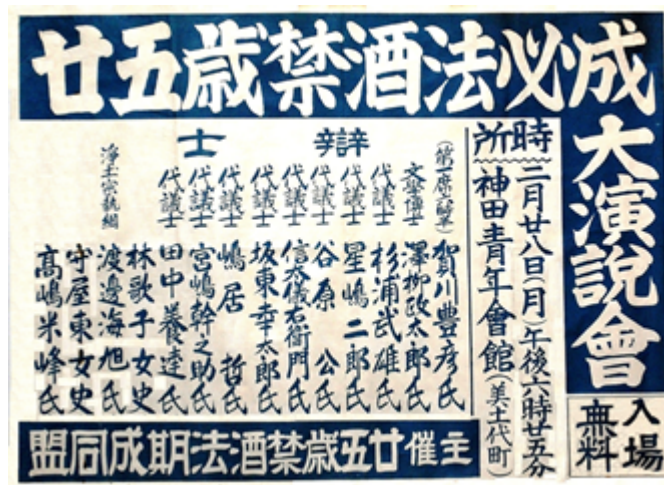 廿五歳禁酒法必成
大演説會
入場無料
時 二月廿八日(月)午後六時廿五分
所 神田青年會館(美土代町)
辯士
賀川豊彦氏
文學博士 澤柳政太郎氏
代議士 杉浦武雄氏
代議士 星嶋二郎氏
代議士 谷原公氏
代議士 信太儀右衛門氏
代議士 坂東幸太郎氏
代議士 嶋居哲氏
代議士 宮嶋幹之助氏
代議士 田中養達氏
林歌子女史
浄土宗執綱 渡邊海旭氏
守屋東女史
高嶋米峰氏
主催 廿五歳禁酒法期成同盟